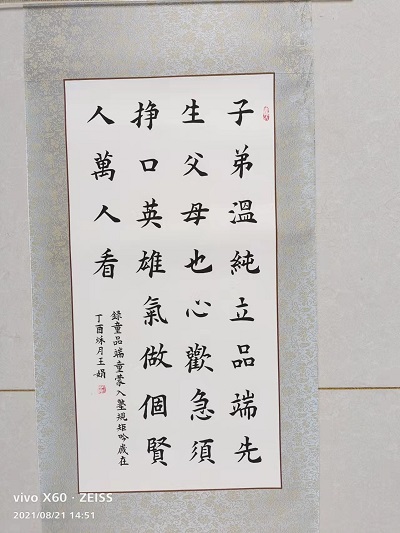 子弟溫純立品端先
生父母也心歡急須
掙口英雄氣做個賢
人萬人看
錄童品端童蒙入塾規矩吟歲在
丁酉秋月王娟
vivo X60 · ZEISS
2021/08/21 14:51